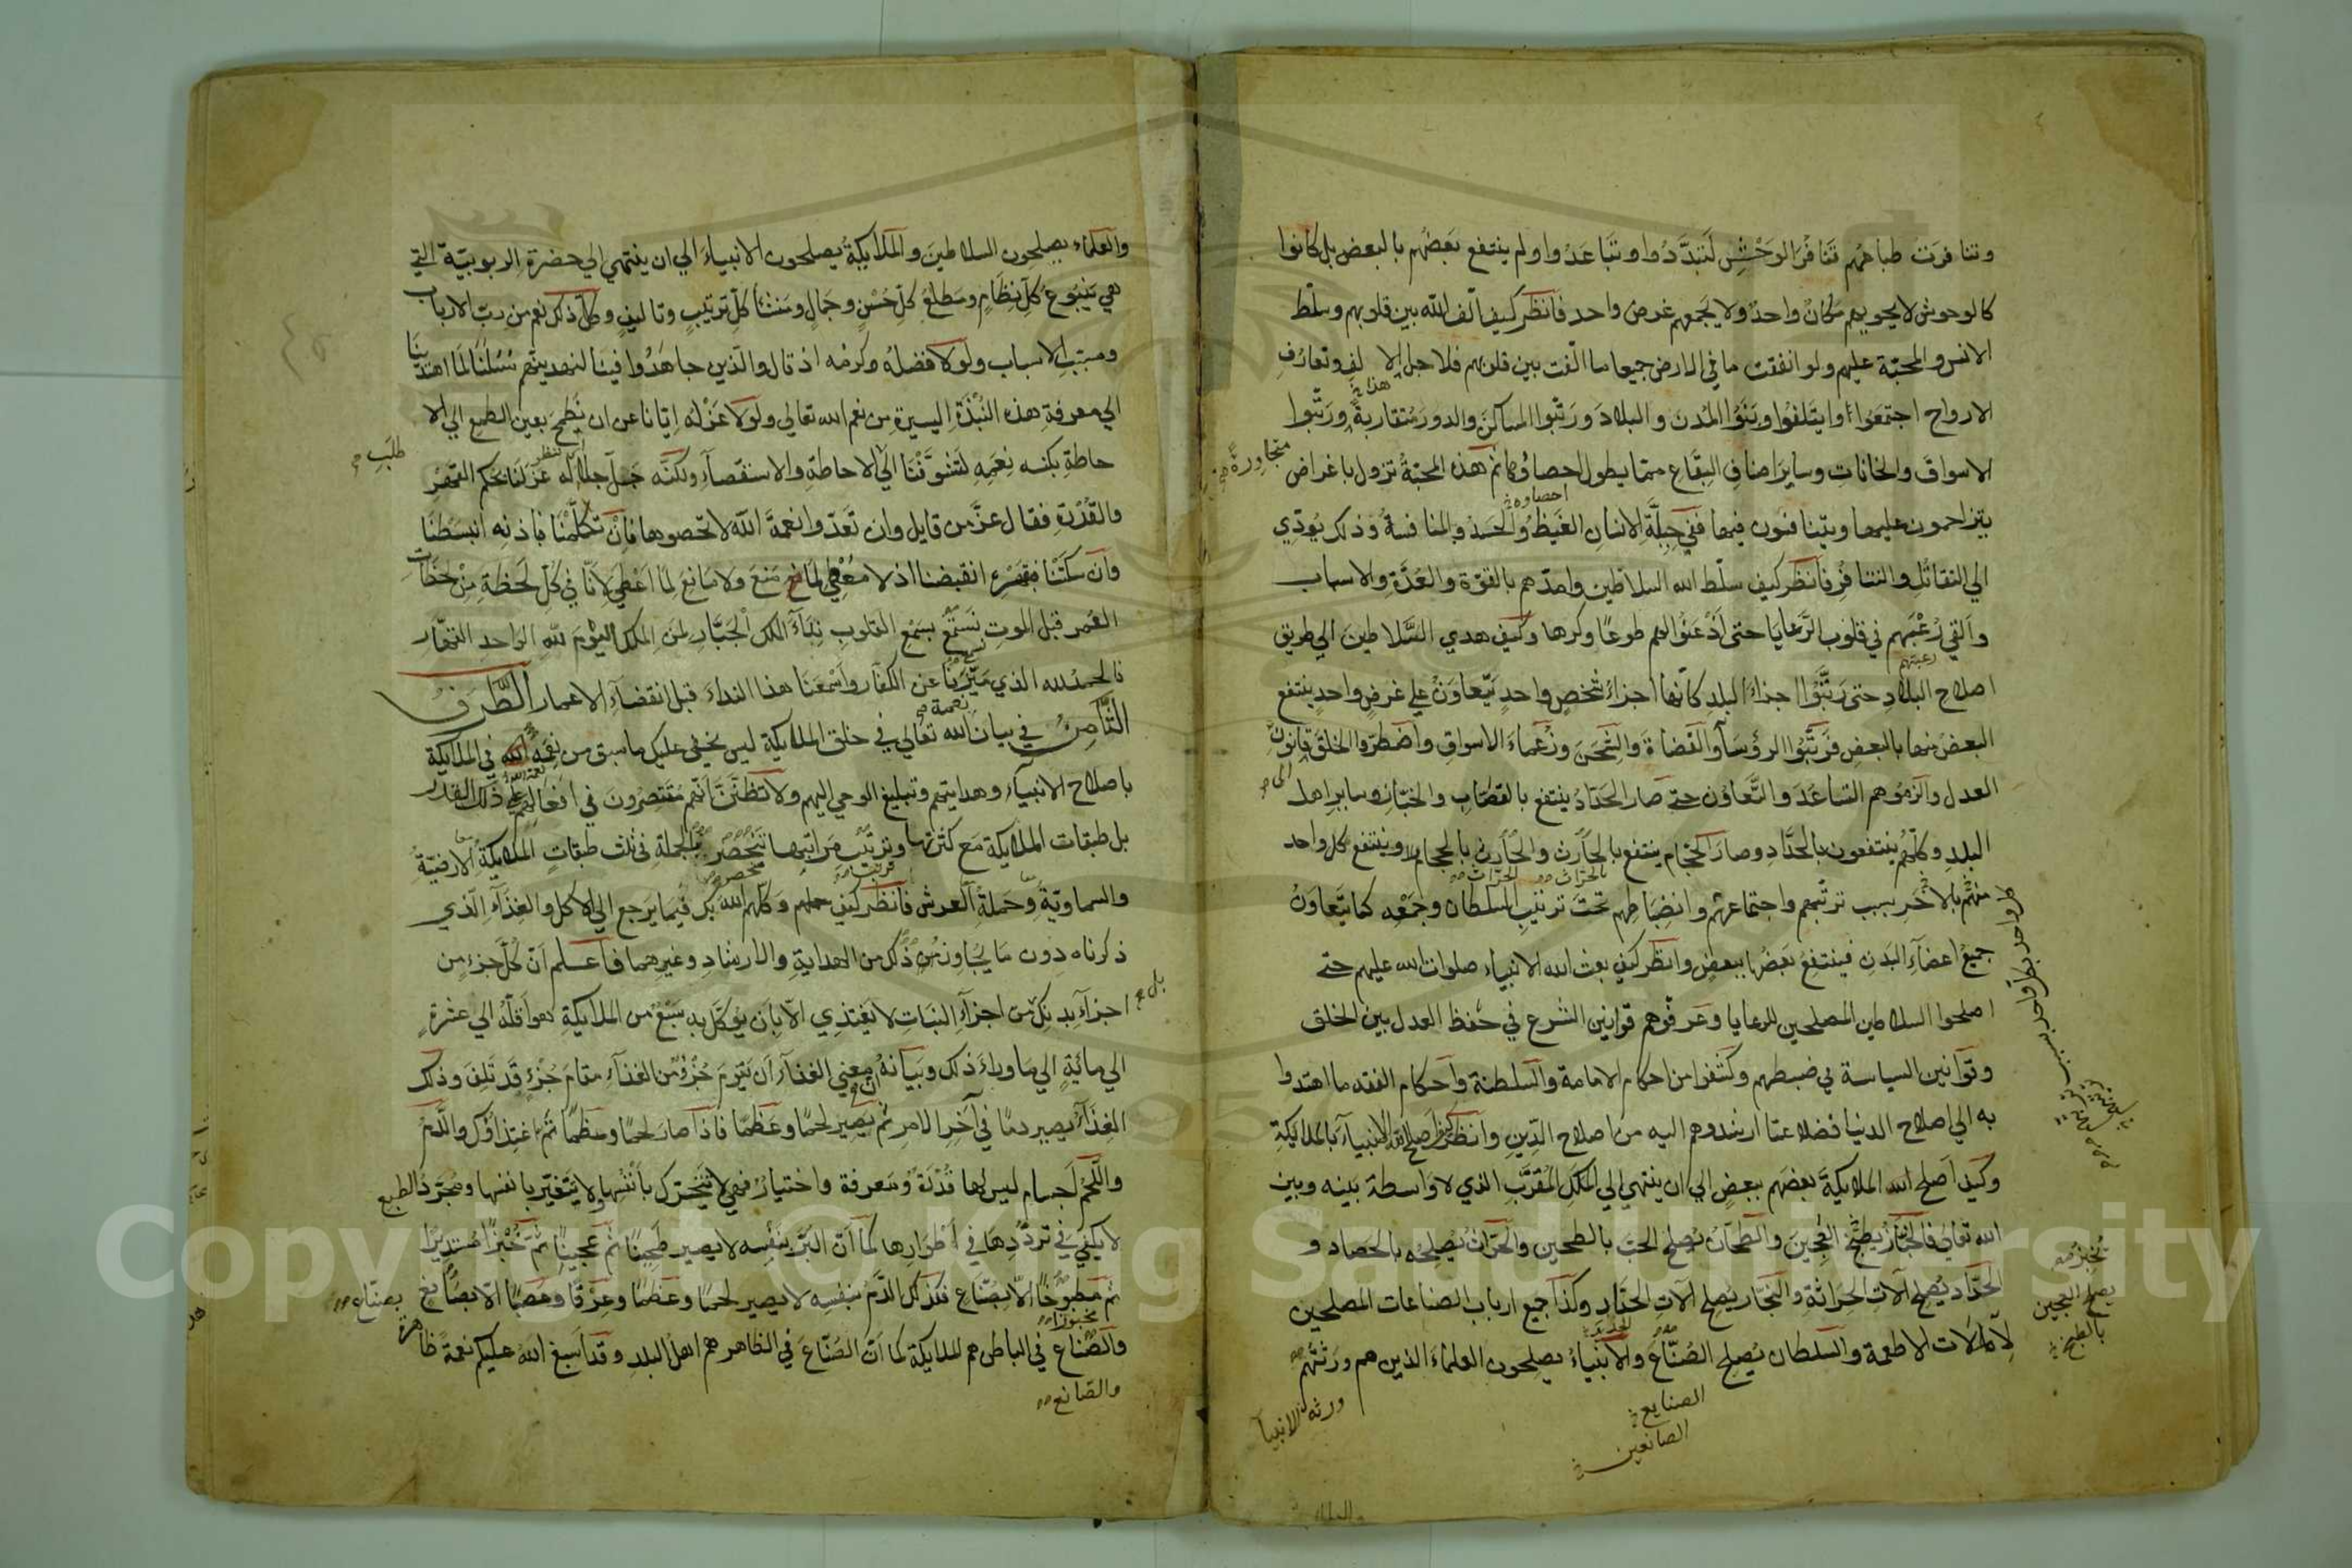 وتنافرت طباعهم تنافر الوحش لتبددوا وتباعدوا ولم ينتفع بعضهم بالبعض بل كانوا
كالوحوش لا يحويهم مكان واحد ولا يجمعهم غرض واحد فانظر كيف الف الله بين قلوبهم وسلط
الانس والمحبة عليهم ولو انفقت ما في الارض جميعا ما الفت بين قلوبهم فلاجل الالف وتعارف
الارواح اجتمعوا وايتلفوا وبنوا المدن والبلاد ورتبوا المساكن والدور متقاربة ورتبوا
متجاورة
الاسواق والخانات وساير اصناف البقاع مما يطول احصاؤها ثم هذه المحبة تزول باغراض
احصاوه
يتزاحمون عليها ويتنافسون فيها ففي جبلة الانسان الغيظ والحسد والمنافسة وذلك يودي
الي التقاتل والتنافر فانظر كيف سلط الله السلاطين وامدهم بالقوة والعدة والاسباب
والقي رعبهم في قلوب الرعايا حتى اذعنوا لهم طوعا وكرها وكيف هدي السلاطين الي طريق
رعبتهم
اصلاح البلاد حتى رتبوا اجزاء البلد كانها اجزاء شخص واحد يتعاون علي غرض واحد ينتفع
البعض منها بالبعض فرتبوا الرؤساء والقضاة والشحن وزعماء الاسواق واضطروا الخلق قانون
الى
العدل والزموهم التساعد والتعاون حتى صار الحداد ينتفع بالقصاب والخباز وساير اهل
البلد وكلهم ينتفعون بالحداد وصار الحجام ينتفع بالحارث والحارث بالحجام وينتفع كل واحد
بالحراث الحراث
منهم بالاخر بسبب ترتيبهم واجتماعهم وانضباطهم تحت ترتيب السلطان وجمعه كما يتعاون
جميع اعضاء البدن فينتفع بعضها ببعض وانظر كيف بعث الله الانبياء صلوات الله عليهم حتى
اصلحوا السلاطين المصلحين للرعايا وعرفوهم قوانين الشرع في حفظ العدل بين الخلق
وقوانين السياسة في ضبطهم وكشفوا من احكام الامامة والسلطنة واحكام الفقه ما اهتدوا
به الي اصلاح الدنيا فضلا عما ارشدوهم اليه من اصلاح الدين وانظر كيف اصلح الله الانبياء بالملايكة
وكيف اصلح الله الملايكة بعضهم ببعض الي ان ينتهي الي الملك المقرب الذي لا واسطة بينه وبين
الله تعالي فالخباز يطبخ العجين والطحان يصلح الحب بالطحين والحراث يصلحه بالحصاد و
يخبز
يصلح العجين
بالطبخ
الحداد يصلح الات الحراثة والنجار يصلح الات الحداد وكذا جميع ارباب الصناعات المصلحين
لآلات الاطعمة والسلطان يصلح الصناع والانبياء يصلحون العلماء الذين هم ورثتهم
الصنايع
الصانعين
ورثة الانبيآ
والعلماء يصلحون السلاطين والملايكة يصلحون الانبياء الي ان ينتهي الي حضرة الربوبية التي
هي ينبوع كل نظام ومطلع كل حسن وجمال ومنشأ كل ترتيب وتاليف وكل ذلك نعم من رب الارباب
ومسبب الاسباب ولولا فضله وكرمه اذ قال والذين جاهدوا فينا لنهدينهم سبلنا لما اهتدينا
الي معرفة هذه النبذة اليسيرة من نعم الله تعالي ولولا عزله ايانا عن ان نطمح بعين الطمع الي الا
حاطة بكنه نعمه لتشوقنا الي الاحاطة والاستقصآء ولكنه جل جلاله عزلنا بحكم القهر
طلب
والقدرة فقال عز من قايل وان تعدوا نعمة الله لا تحصوها فان تكلمنا فباذنه انبسطنا
وان سكتنا فبقهره انقبضنا اذ لا معطي لما منع ولا مانع لما اعطي لانا في كل لحظة من لحظات
العمر قبل الموت نستمع بسمع القلوب ندآء الملك الجبار لمن الملك اليوم لله الواحد القهار
فالحمد لله الذي ميزنا عن الكفار واسمعنا هذا النداء قبل انقضآء الاعمار الطرف
الثامن في بيان نعمة الله تعالي في خلق الملايكة ليس يخفي عليك ما سبق من نعمة الله في الملايكة
باصلاح الانبيآء وهدايتهم وتبليغ الوحي اليهم ولا تظنن انهم مقتصرون في افعالهم علي ذلك القدر
بل طبقات الملايكة مع كثرتها وترتيب مراتبها تنحصر بالجملة في ثلث طبقات الملايكة الارضية
والسماوية وحملة العرش فانظر كيف وكلهم الله بك فيما يرجع الي الاكل والغذآء الذي
ذكرناه دون ما يجاوز من ذلك من الهداية والارشاد وغيرهما فاعلم ان كل جزء من
اجزآء بدنك من اجزآء النبات لا يغتذي الا بان يوكل به سبع من الملايكة هو اقله الي عشرة
بل
الي ماية الي ما وراء ذلك وبيانه ان معني الغذآء ان يقوم جزؤ من الغذآء مقام جزء قد تلف وذلك
الغذآء يصير دما في آخر الامر ثم يصير لحما وعظما فاذا صار لحما وعظما تم اغتذاؤك والدم
واللحم اجسام ليس لها قدرة ومعرفة واختيار فهي لا تتحرك بانفسها ولا يتغير بانفسها ومجرد الطبع
لا يكفي في ترددها في اطوارها كما ان البر بنفسه لا يصير طحينا ثم عجينا ثم خبزا مستديرا
ثم مطبوخا الا بصناع فكذلك الدم بنفسه لا يصير لحما وعظما وعرقا وعصبا الا بصانع
مخبوزا
بصناع
والصناع في الباطن هم الملايكة كما ان الصناع في الظاهر هم اهل البلد وقد اسبغ الله عليكم نعمة ظاهرة
والصانع
Copyright © King Saud University